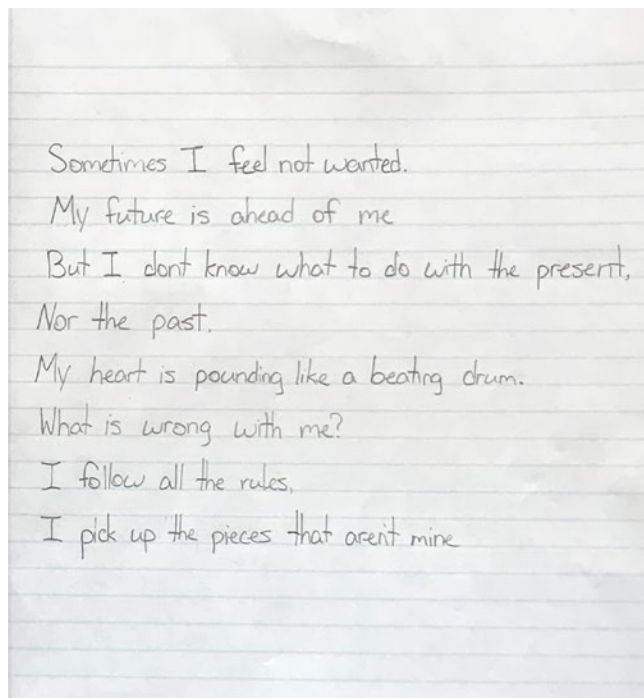 Sometimes I feel not wanted.
My future is ahead of me
But I dont know what to do with the present,
Nor the past.
My heart is pounding like a beating drum.
What is wrong with me?
I follow all the rules,
I pick up the pieces that aren't mine